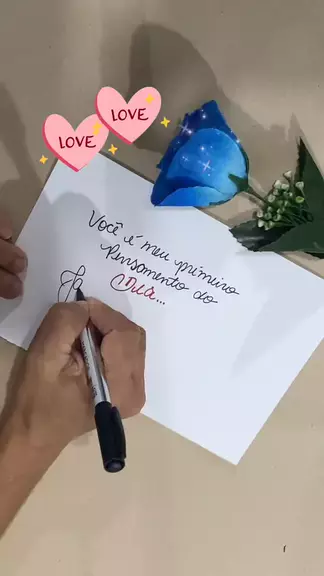 LOVE
LOVE
Você é meu primeiro
Pensamento do
Dia...